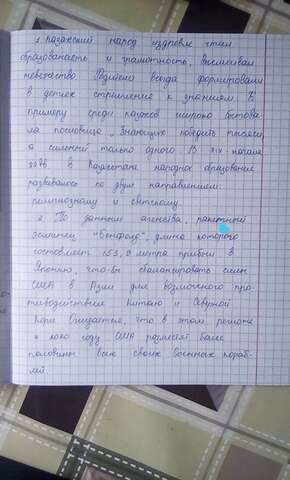 1. Казахский народ издревле чтил
образованость и грамотность, высмеивал
невежество Родители всегда формировали
в детях стремление к знаниям К
примеру среди казахов широко бытова
ла пословица „ Знающих победить тысячи,
а сильный только одного В XIX-начале
XXвв в Казахстане народное образование
развивалось по двум направлениям:
религиозному и светскому.
2. По данным агенсва, ракетный
эсминец "Бенфолд", длина которого
составляет 153,9 метра прибыл в
Японию, что-бы сбалансировать силы
США в Азии для возможного про-
тиводействия Китаю и Северной
Корее Ожидается, что в этом регионе
к году США разместят более
половины всех своих военных кораб-
лей.